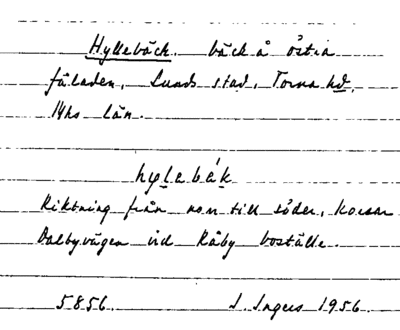 Hyllebäck. bäck å östra
fäladen, Lunds stad, Torna hd,
Mhs län.
hylabák
Riktning från norr till söder, korsar
Dalbyvägen vid Råby boställe.
5856. I. Ingers 1956.